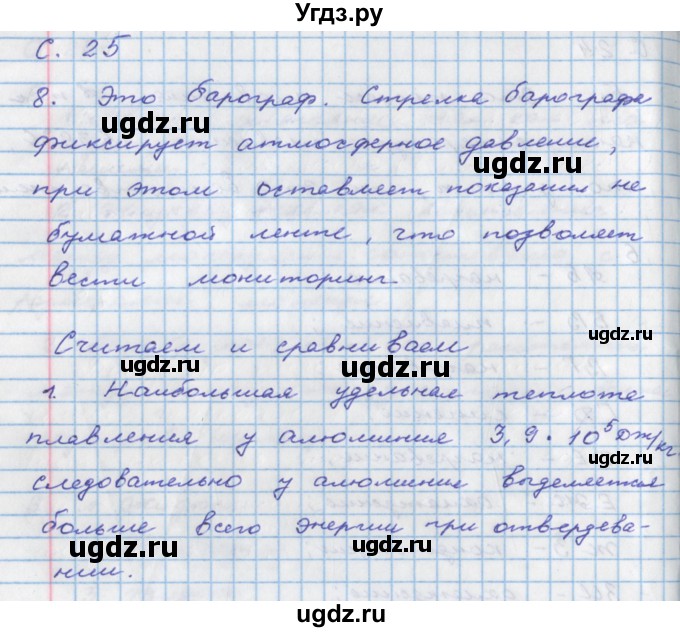 Угдз.ру
С. 25
8. Это барограф. Стрелка барографа
ugdz.ru
фиксирует атмосферное давление,
ugdz.ru
при этом оставляет показания не
бумажной ленте, что позволяет
вести мониторинг.
ugdz.ru
Считаем и сравниваем
ugdz.ru
ugdz.ru
1. Наибольшая удельная теплота
плавления у алюминия 3,9 · 10⁵ Дж/кг
ugdz.ru
следовательно у алюминия выделяется
больше всего энергии при отвердева-
ugdz.ru
ugdz.ru
нии.
ugdz.ru